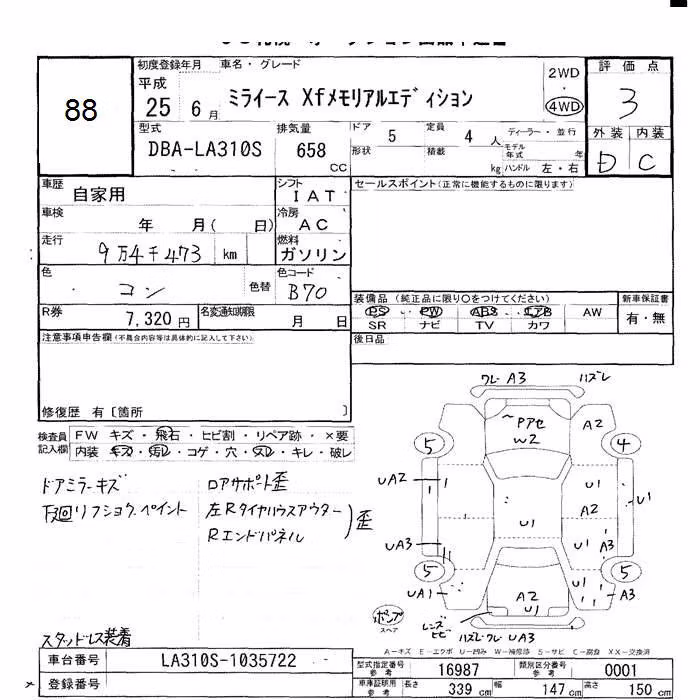 88
初度登録年月 車名・グレード
平成 25 6月
ミライース Xfメモリアルエディション
2WD
・
4WD
評価点
3
外装 内装
D C
型式
DBA-LA310S
排気量
658 CC
ドア 5
定員 4 人
ディーラー・並行
形状
積載 kg
モデル年式 年
ハンドル 左・右
車歴 自家用
シフト IAT
セールスポイント(正常に機能するものに限ります)
車検 年 月( 日)
冷房 AC
走行 9万4千473 km
燃料 ガソリン
色 コン 色替
色コード B70
装備品(純正品に限り○をつけてください)
PS・PW・ABS・エアB AW
SR ナビ TV カワ
新車保証書
有・無
R券 7,320円
名変通知期限 月 日
後日品
注意事項申告欄(不具合内容等は具体的に記入して下さい)
修復歴 有〔箇所 〕
検査員記入欄
FW キズ・飛石・ヒビ割・リペア跡・×要
内装 キズ・汚レ・コゲ・穴・スレ・キレ・破レ
ドアミラーキズ
下回リフショク、ペイント
ロアサポート歪
左Rタイヤハウスアウター
Rエンドパネル
歪
スタッドレス装着
ワレ A3 ハズレ
〜Pアセ
W2
A2
5 4
UA2
U1
A2
U1
U1
UA3
U1
A3
5 5
UA1
U1
A2
A3
A2
U1
ポンプ
スペア
レンズヒビ
ハズレ・ワレ UA3
A-キズ E-エクボ U-凹み W-補修跡 S-サビ C-腐食 XX-交換済
車台番号 LA310S-1035722
登録番号
型式指定番号参考 16987
類別区分番号参考 0001
車庫証明用参考
長さ 339 cm
幅 147 cm
高さ 150 cm